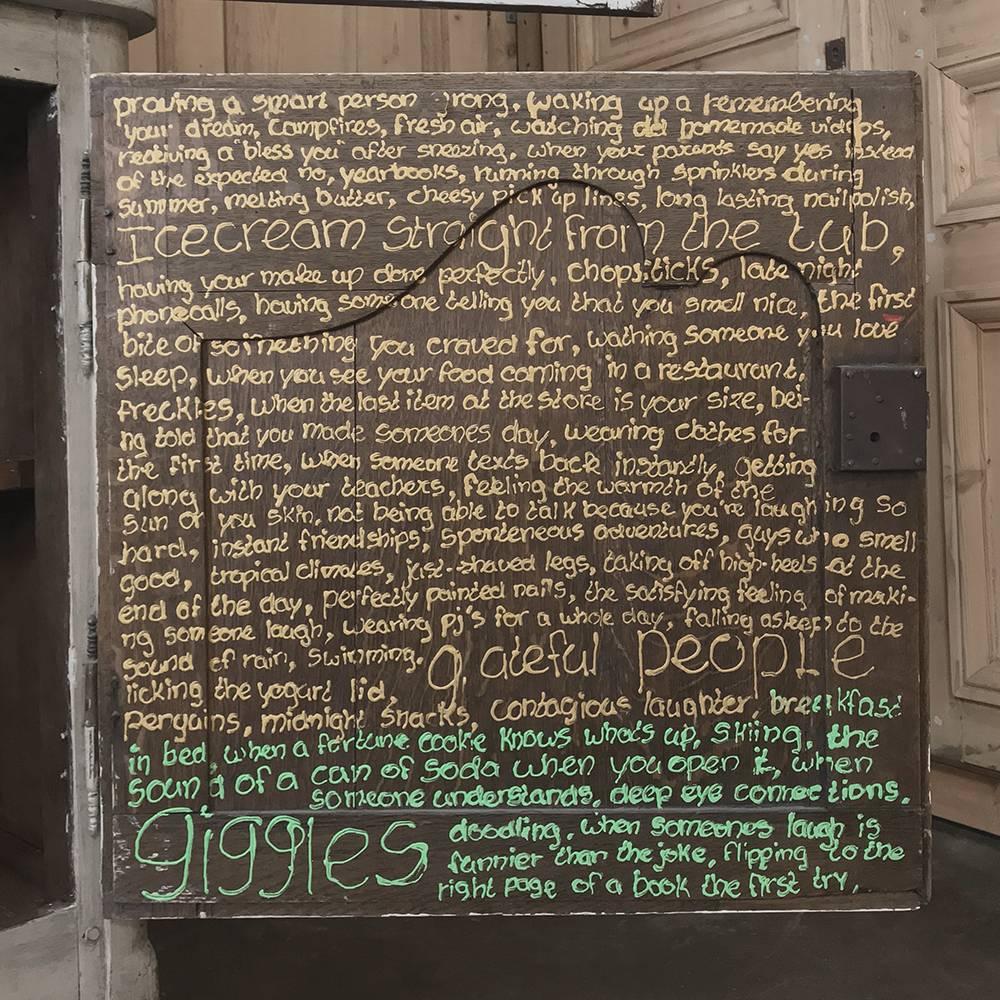 proving a smart person wrong, waking up a remembering
your dream, campfires, fresh air, watching old homemade videos,
receiving a "bless you" after sneezing, when your parents say yes instead
of the expected no, yearbooks, running through sprinklers during
summer, melting butter, cheesy pick up lines, long lasting nailpolish,
Icecream straight from the tub,
having your make up done perfectly, chopsticks, late night
phonecalls, having someone telling you that you smell nice, the first
bite of something you craved for, wathing someone you love
sleep, when you see your food coming in a restaurant,
freckles, when the last item at the store is your size, bei-
ng told that you made someones day, wearing clothes for
the first time, when someone texts back instantly, getting
along with your teachers, feeling the warmth of the
sun on you skin, not being able to talk because you're laughing so
hard, instant friendships, sponteneous adventures, guys who smell
good, tropical climates, just-shaved legs, taking off high-heels at the
end of the day, perfectly painted nails, the satisfying feeling of maki-
ng someone laugh, wearing pj's for a whole day, falling asleep to the
sound of rain, swimming, grateful people
licking the yogurt lid,
penguins, midnight snacks, contagious laughter, breakfast
in bed, when a fortune cookie knows what's up, skiing, the
sound of a can of soda when you open it, when
someone understands, deep eye connections,
giggles
doodling, when someones laugh is
funnier than the joke, flipping to the
right page of a book the first try,